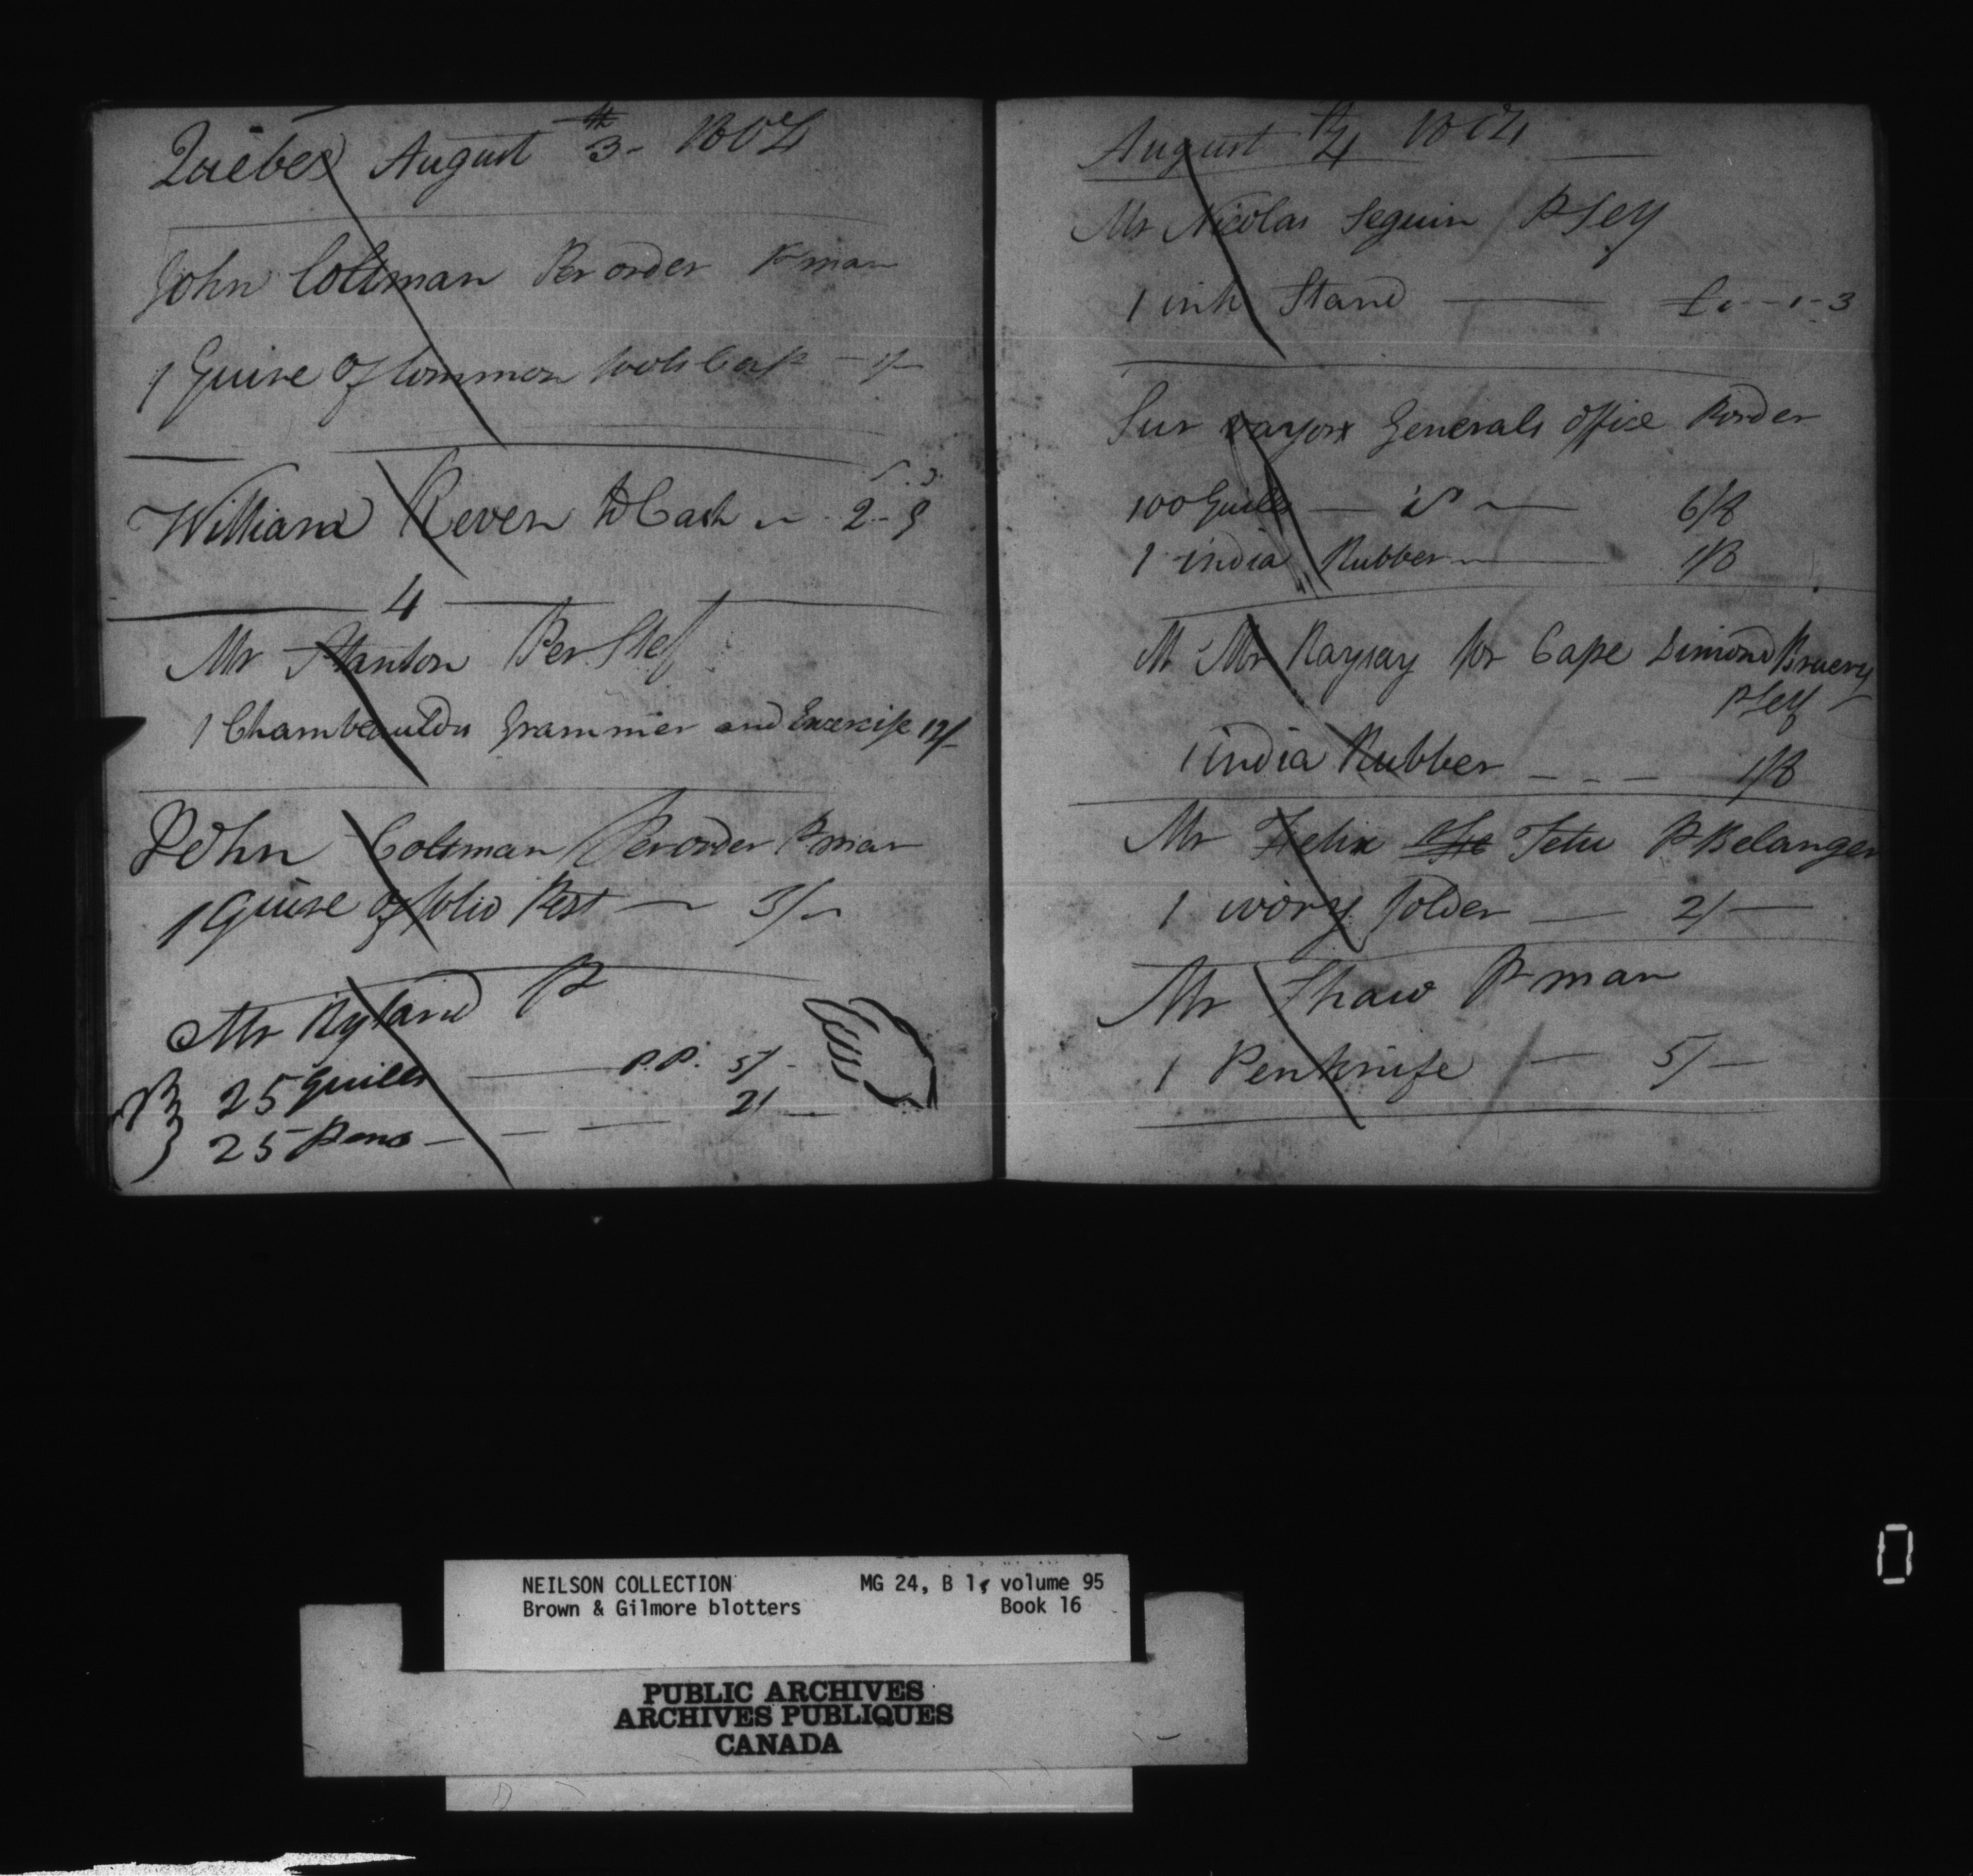 Quebec August 3th 1804
John Coltman Per order P man
1 Quire Of Common foolsCap - 1/-
William Reven To Cash 2-9
4
Mr Stanton Per Self
1 Chambeaulds Grammier and Exercise 12/-
John Coltman Per order P man
1 Quire of folio Post - 3/-
Mr Ryland P
25 Quills P.P. 5/-
25 Pens - - - 2/-
August 4th 1804
Mr Nicolas Seguin P Self
1 ink Stand £ - 1 - 3
Sur vayors Generals Office P order
100 Quills 6/8
1 india Rubber 1/8
Mr Mr Raysay for Cape Dimond Bruery
P Self
1 india Rubber - - - 1/8
Mr Felix Tetu P Belanger
1 ivory folder - 2/-
Mr Shaw P man
1 Penknife - 5/-
NEILSON COLLECTION MG 24, B 1, volume 95
Brown & Gilmore blotters Book 16
PUBLIC ARCHIVES
ARCHIVES PUBLIQUES
CANADA